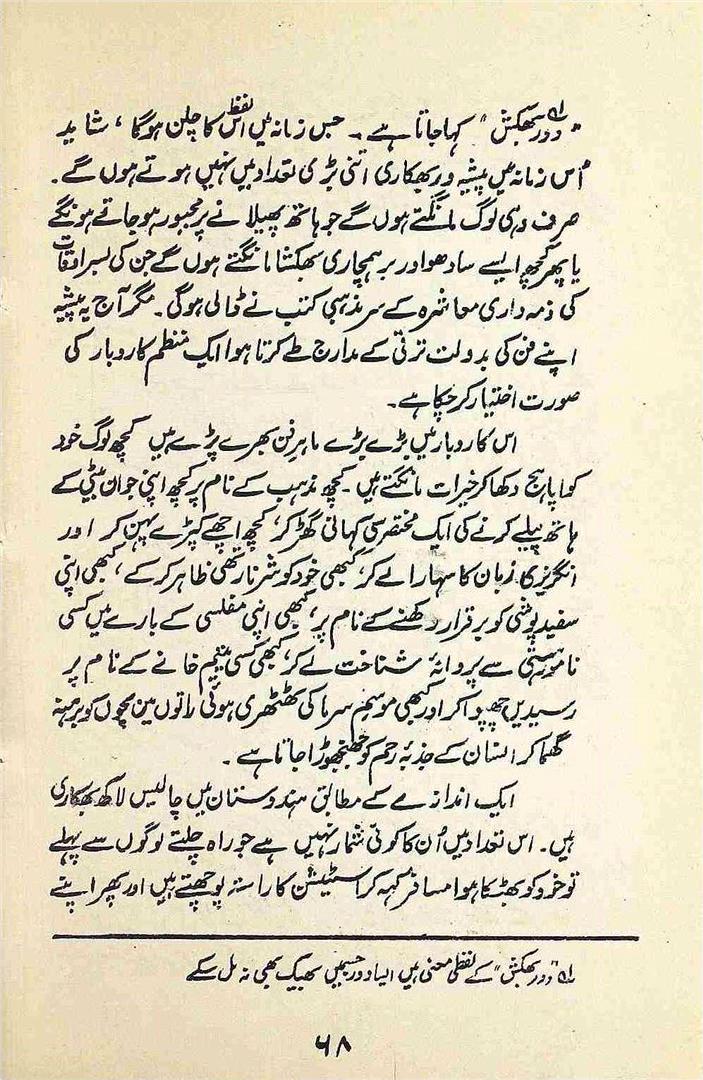 "دُور بھکش(۱)" کہا جاتا ہے۔ جس زمانہ میں اس لفظ کا چلن ہوگا، شاید
اُس زمانہ میں پیشہ ور بھکاری اتنی بڑی تعداد میں نہیں ہوتے ہوں گے۔
صرف وہی لوگ مانگتے ہوں گے جو ہاتھ پھیلانے پر مجبور ہو جاتے ہونگے
یا پھر کچھ ایسے سادھو اور برہمچاری بھکشا مانگتے ہوں گے جن کی بسر اوقات
کی ذمہ داری معاشرہ کے سر مذہبی کتب نے ڈالی ہوگی۔ مگر آج یہ پیشہ
اپنے فن کی بدولت ترقی کے مدارج طے کرتا ہوا ایک منظم کاروبار کی
صورت اختیار کر چکا ہے۔
اس کاروبار میں بڑے بڑے ماہرِ فن بھرے پڑے ہیں کچھ لوگ خود
کو اپاہج دکھا کر خیرات مانگتے ہیں۔ کچھ مذہب کے نام پر کچھ اپنی جوان بیٹی کے
ہاتھ پیلے کرنے کی ایک مختصر سی کہانی گھڑ کر، کچھ اچھے کپڑے پہن کر اور
انگریزی زبان کا سہارا لے کر، کبھی خود کو شرنارتھی ظاہر کر کے، کبھی اپنی
سفید پوشی کو برقرار رکھنے کے نام پر، کبھی اپنی مفلسی کے بارے میں کسی
نامور ہستی سے پروانۂ شناخت لے کر، کبھی کسی یتیم خانے کے نام پر
رسیدیں چھپوا کر اور کبھی موسمِ سرما کی ٹھٹھری ہوئی راتوں میں بچوں کو برہنہ
گھما کر انسان کے جذبۂ رحم کو جھنجھوڑا جاتا ہے۔
ایک اندازے کے مطابق ہندوستان میں چالیس لاکھ بھکاری
ہیں۔ اس تعداد میں اُن کا کوئی شمار نہیں ہے جو راہ چلتے لوگوں سے پہلے
تو خود کو بھٹکا ہوا مسافر کہہ کر اسٹیشن کا راستہ پوچھتے ہیں اور پھر اپنے
(۱) "دور بھکش" کے لفظی معنی ہیں ایسا دور جسمیں بھیک بھی نہ مل سکے
۶۸